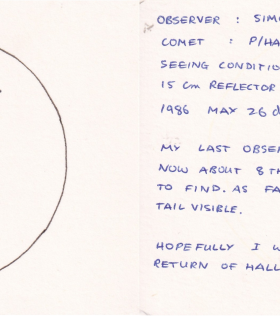 OBSERVER : SIM
COMET : P/HA
SEEING CONDITIO
15 cm REFLECTOR
1986 MAY 26 d
MY LAST OBSE
NOW ABOUT 8 TH
TO FIND. AS FA
TAIL VISIBLE.
HOPEFULLY I W
RETURN OF HALL